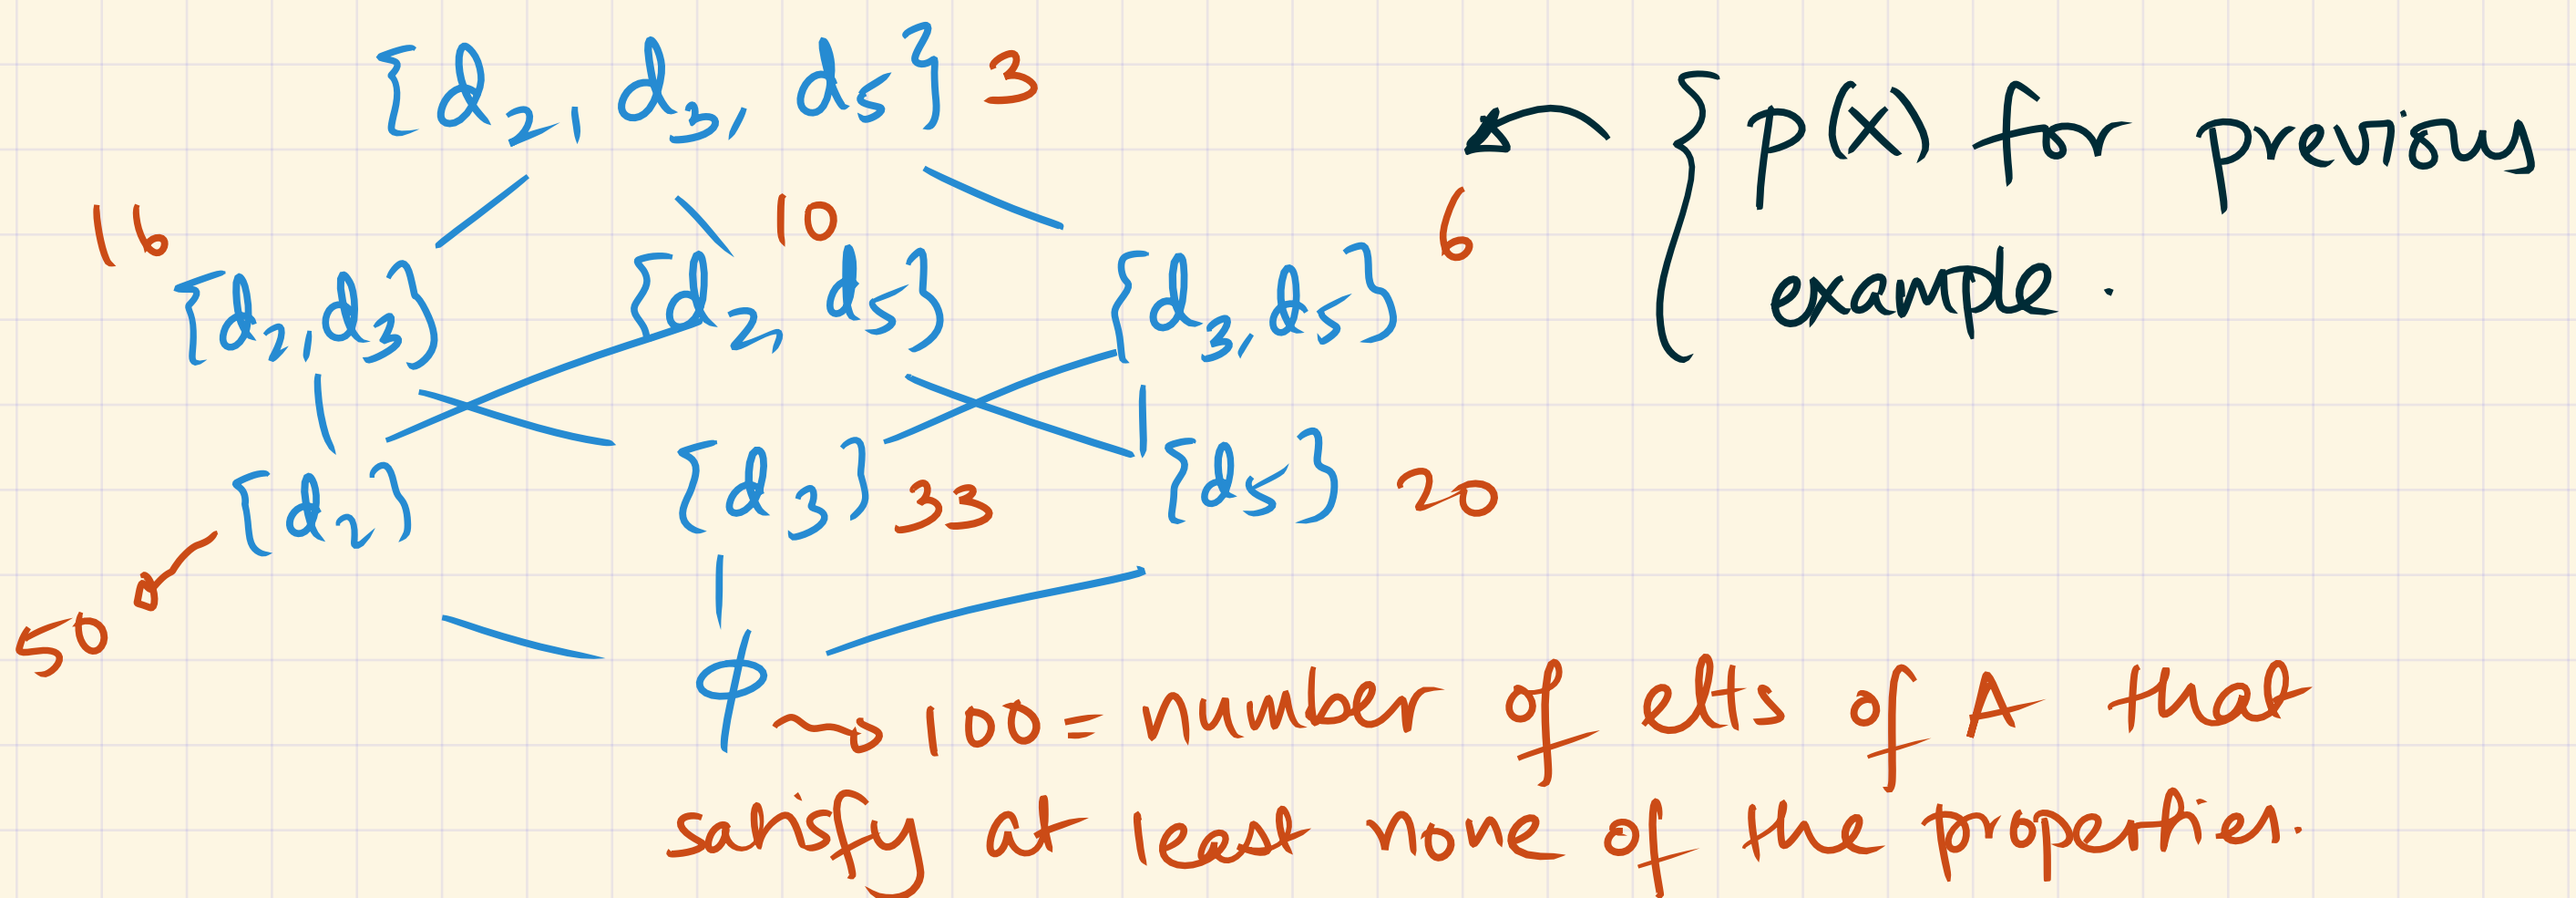 {d₂, d₃, d₅} 3
{ p(x) for previous
example.
16 10 6
{d₂, d₃} {d₂, d₅} {d₃, d₅}
{d₂} {d₃} 33 {d₅} 20
50
ϕ → 100 = number of elts of A that
satisfy at least none of the properties.